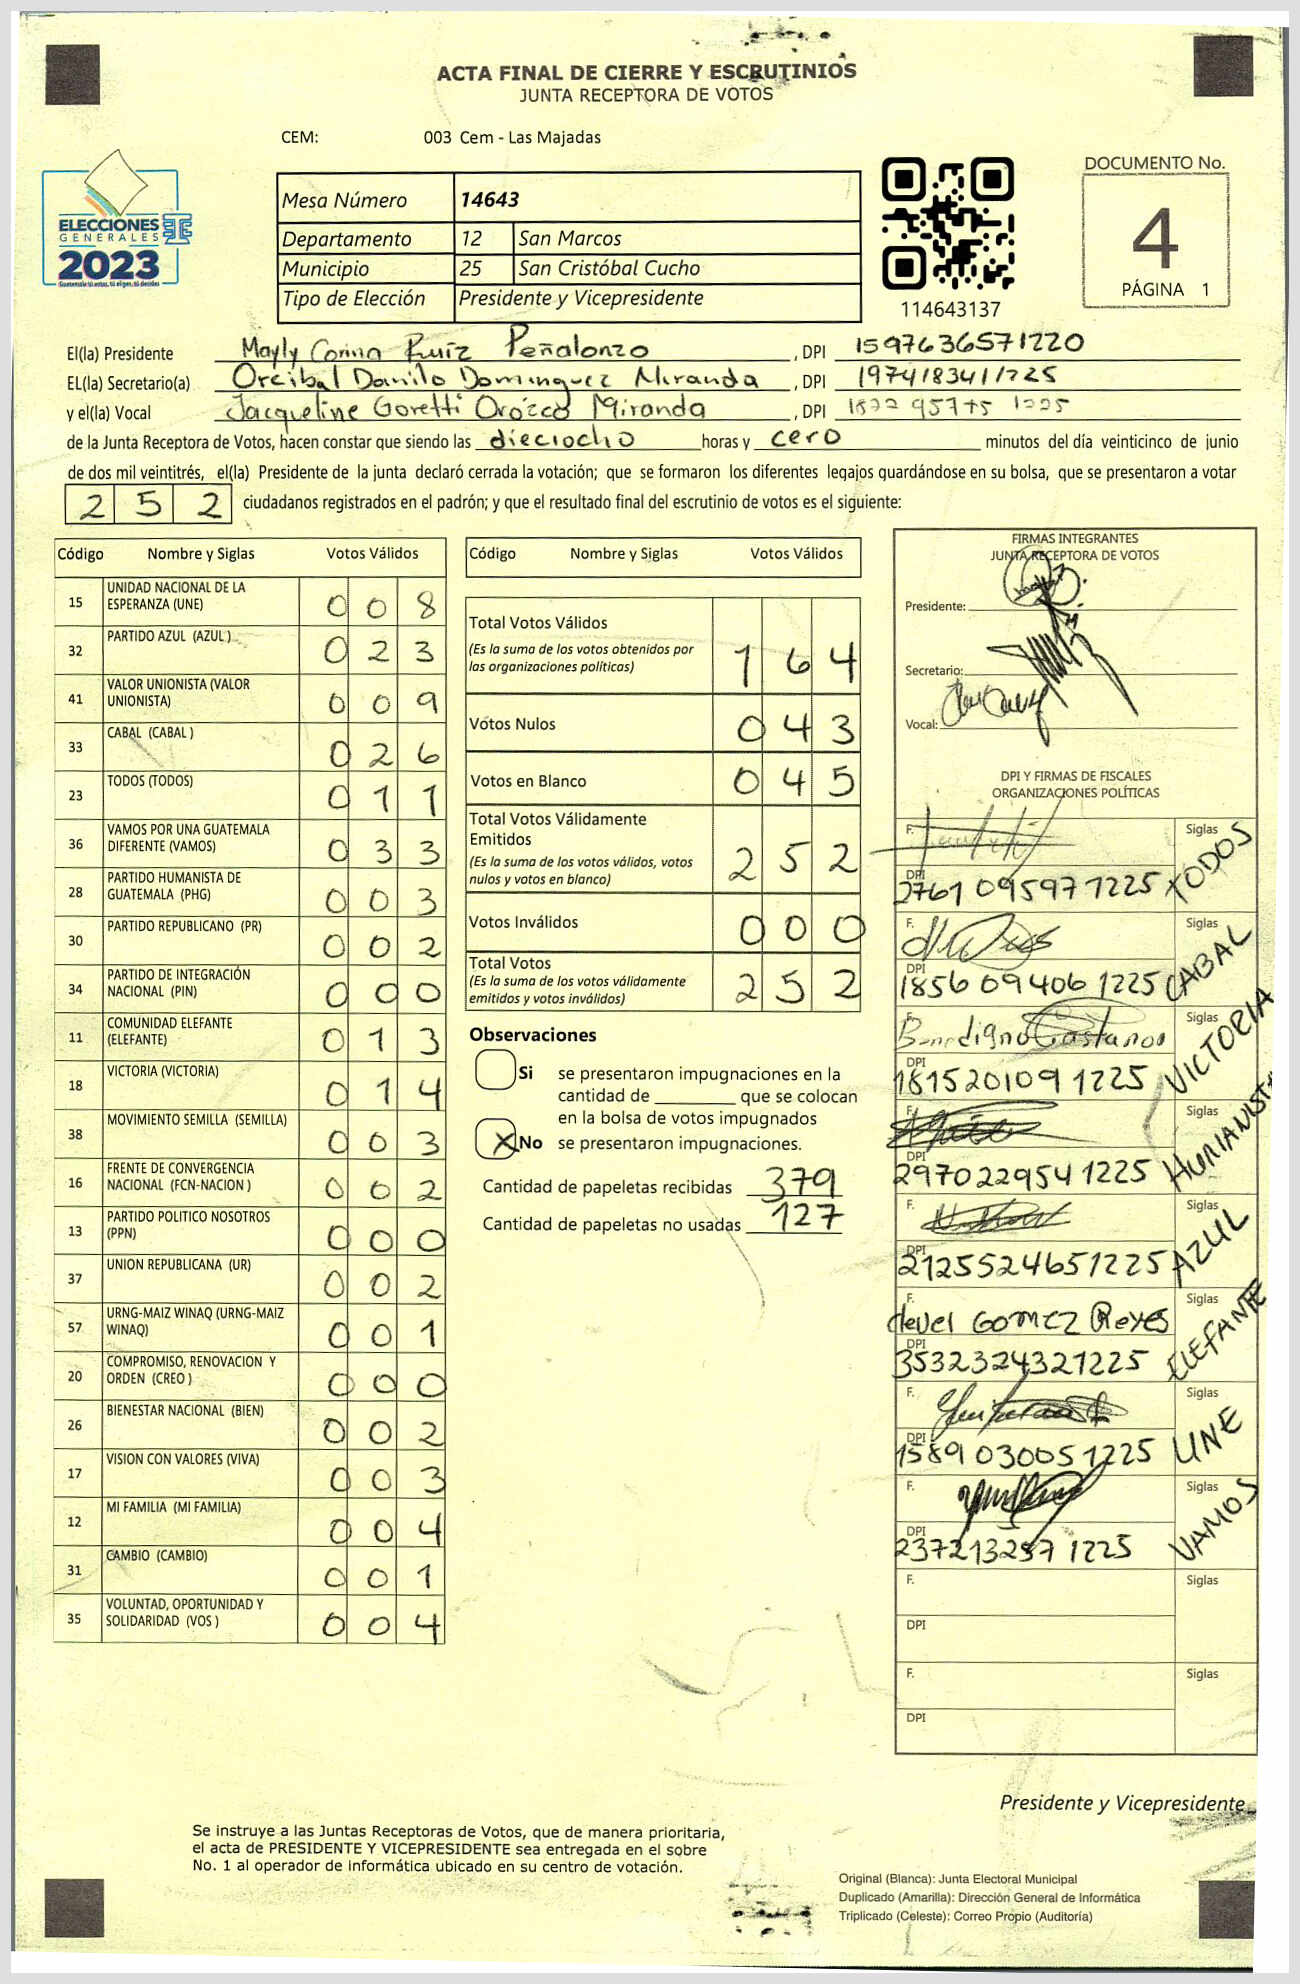 ACTA FINAL DE CIERRE Y ESCRUTINIOS
JUNTA RECEPTORA DE VOTOS
CEM: 003 Cem - Las Majadas
ELECCIONES
GENERALES
2023
Guatemala tú votas, tú eliges, tú decides
Mesa Número 14643
Departamento 12 San Marcos
Municipio 25 San Cristóbal Cucho
Tipo de Elección Presidente y Vicepresidente
114643137
DOCUMENTO No.
4
PÁGINA 1
El(la) Presidente Mayly Corina Ruíz Peñalonzo , DPI 1597636571220
EL(la) Secretario(a) Orcibal Danilo Dominguez Miranda , DPI 1974183411225
y el(la) Vocal Jacqueline Goretti Orózco Miranda , DPI
de la Junta Receptora de Votos, hacen constar que siendo las dieciocho horas y cero minutos del día veinticinco de junio
de dos mil veintitrés, el(la) Presidente de la junta declaró cerrada la votación; que se formaron los diferentes legajos guardándose en su bolsa, que se presentaron a votar
252 ciudadanos registrados en el padrón; y que el resultado final del escrutinio de votos es el siguiente:
Código Nombre y Siglas Votos Válidos
15 UNIDAD NACIONAL DE LA ESPERANZA (UNE) 008
32 PARTIDO AZUL (AZUL ) 023
41 VALOR UNIONISTA (VALOR UNIONISTA) 009
33 CABAL (CABAL ) 026
23 TODOS (TODOS) 011
36 VAMOS POR UNA GUATEMALA DIFERENTE (VAMOS) 033
28 PARTIDO HUMANISTA DE GUATEMALA (PHG) 003
30 PARTIDO REPUBLICANO (PR) 002
34 PARTIDO DE INTEGRACIÓN NACIONAL (PIN) 000
11 COMUNIDAD ELEFANTE (ELEFANTE) 013
18 VICTORIA (VICTORIA) 014
38 MOVIMIENTO SEMILLA (SEMILLA) 003
16 FRENTE DE CONVERGENCIA NACIONAL (FCN-NACION ) 002
13 PARTIDO POLITICO NOSOTROS (PPN) 000
37 UNION REPUBLICANA (UR) 002
57 URNG-MAIZ WINAQ (URNG-MAIZ WINAQ) 001
20 COMPROMISO, RENOVACION Y ORDEN (CREO ) 000
26 BIENESTAR NACIONAL (BIEN) 002
17 VISION CON VALORES (VIVA) 003
12 MI FAMILIA (MI FAMILIA) 004
31 CAMBIO (CAMBIO) 001
35 VOLUNTAD, OPORTUNIDAD Y SOLIDARIDAD (VOS ) 004
Código Nombre y Siglas Votos Válidos
Total Votos Válidos
(Es la suma de los votos obtenidos por las organizaciones políticas) 164
Votos Nulos 043
Votos en Blanco 045
Total Votos Válidamente Emitidos
(Es la suma de los votos válidos, votos nulos y votos en blanco) 252
Votos Inválidos 000
Total Votos
(Es la suma de los votos válidamente emitidos y votos inválidos) 252
Observaciones
Si se presentaron impugnaciones en la
cantidad de ________ que se colocan
en la bolsa de votos impugnados
X No se presentaron impugnaciones.
Cantidad de papeletas recibidas 379
Cantidad de papeletas no usadas 127
FIRMAS INTEGRANTES
JUNTA RECEPTORA DE VOTOS
Presidente:
Secretario:
Vocal:
DPI Y FIRMAS DE FISCALES
ORGANIZACIONES POLÍTICAS
F. Siglas TODOS
DPI 2761 09597 1225
F. Siglas CABAL
DPI 1856 09406 1225
F. Benedigno Castañon Siglas VICTORIA
DPI 181520109 1225
F. Siglas HUMANISTA
DPI 297022954 1225
F. Siglas AZUL
DPI 2125524651225
F. Clever GOMEZ Reyes Siglas ELEFANTE
DPI 3532324321225
F. Siglas UNE
DPI 1589 03005 1225
F. Siglas VAMOS
DPI 237213257 1225
F. Siglas
DPI
F. Siglas
DPI
Presidente y Vicepresidente
Se instruye a las Juntas Receptoras de Votos, que de manera prioritaria,
el acta de PRESIDENTE Y VICEPRESIDENTE sea entregada en el sobre
No. 1 al operador de informática ubicado en su centro de votación.
Original (Blanca): Junta Electoral Municipal
Duplicado (Amarilla): Dirección General de Informática
Triplicado (Celeste): Correo Propio (Auditoría)